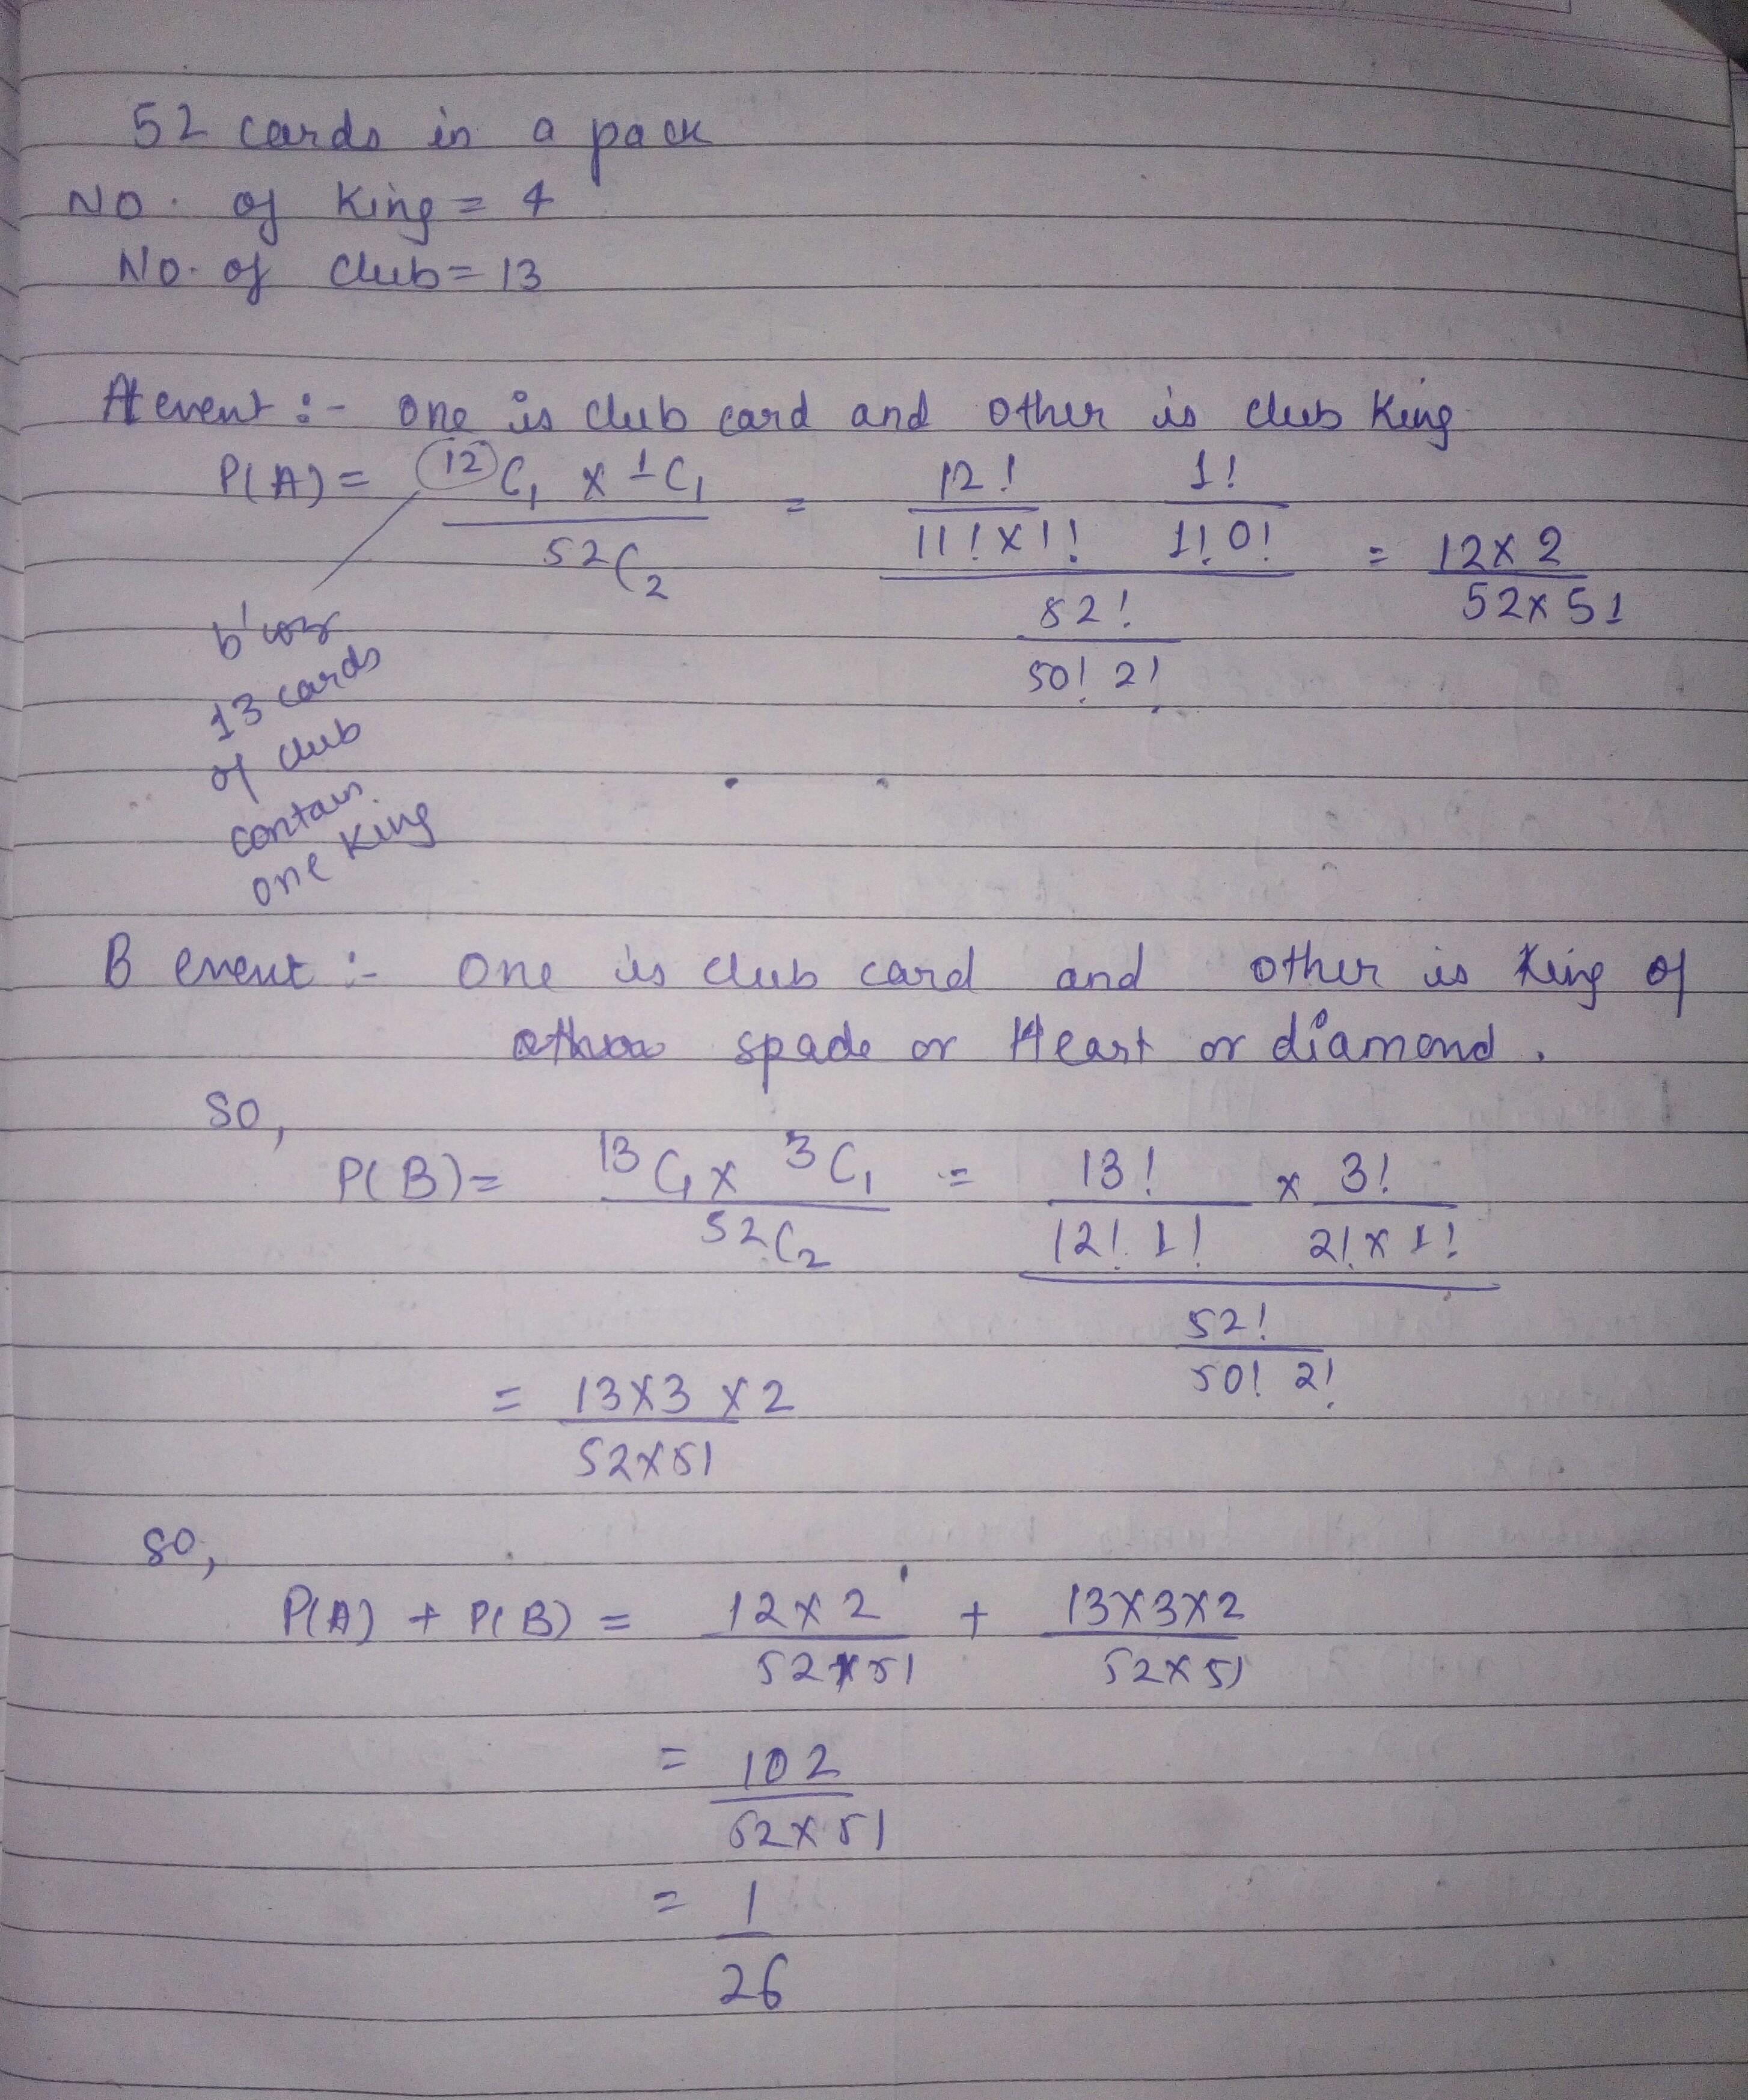 52 cards in a pack
NO. of King = 4
No. of club = 13
A event :- one is club card and other is club King
P(A) = 12C1 x 1C1 / 52C2 = 12! / 11! x 1! 1! / 1! 0! / 82! / 50! 2! = 12 x 2 / 52 x 51
b'coz
13 cards
of club
contain
one King
B event :- one is club card and other is King of
spade or Heart or diamond.
so,
P(B) = 13C1 x 3C1 / 52C2 = 13! / 12! 1! x 3! / 2! x 1! / 52! / 50! 2!
= 13 x 3 x 2 / 52 x 51
so,
P(A) + P(B) = 12 x 2 / 52 x 51 + 13 x 3 x 2 / 52 x 51
= 102 / 52 x 51
= 1 / 26